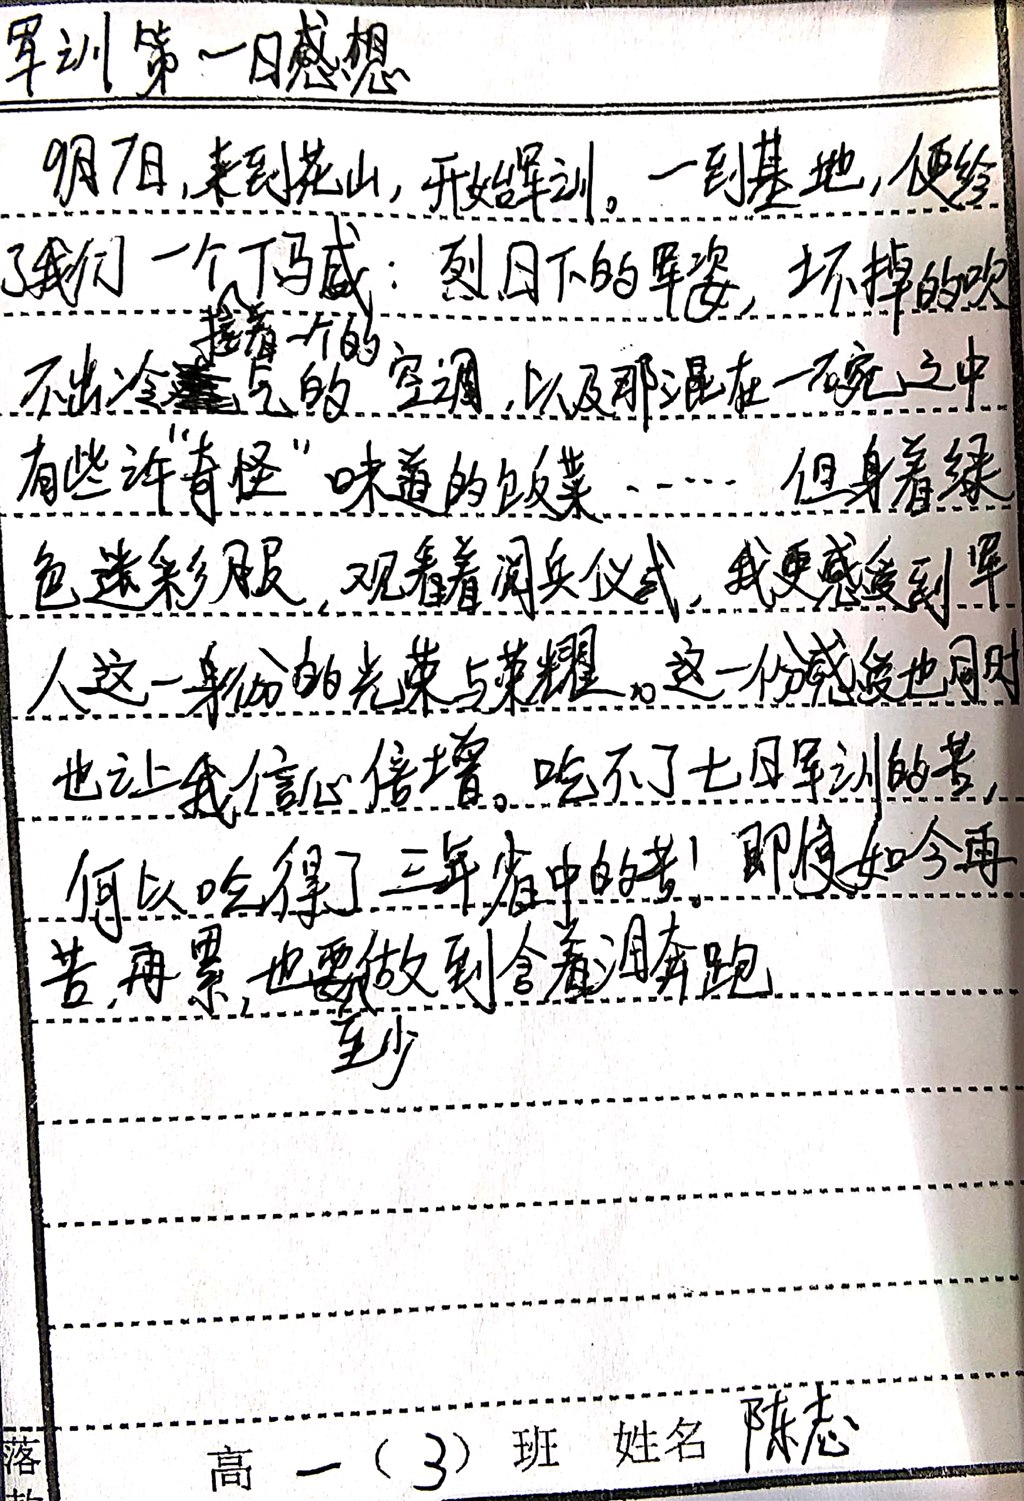 军训第一日感想
9月7日,来到花山,开始军训。一到基地,便给
了我们一个下马威:烈日下的军姿,坏掉的吹
接着一个的
不出冷气的空调,以及那混在一碗之中
有些许“奇怪”味道的饭菜……但身着绿
色迷彩服,观看着阅兵仪式,我更感受到军
人这一身份的光荣与荣耀。这一份感受也同时
也让我信心倍增。吃不了七日军训的苦,
何以吃得了三年省中的苦!即使如今再
苦,再累,也要做到含着泪奔跑
至少
落款
高一(3)班 姓名 陈志